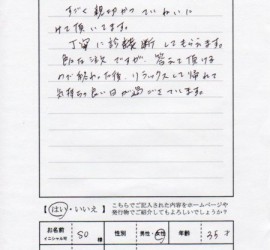 すごく親切かつていねいに
けて頂いてます。
丁寧に診断してもらえます。
ので終わった後、リラックスして帰れて
気持ち良い日が過ごせています。
【はい・いいえ】 こちらでご記入された内容をホームページや
発行物でご紹介してもよろしいでしょうか?
お名前 イニシャル可 SO 様 性別 男性・女性 年齢 35才